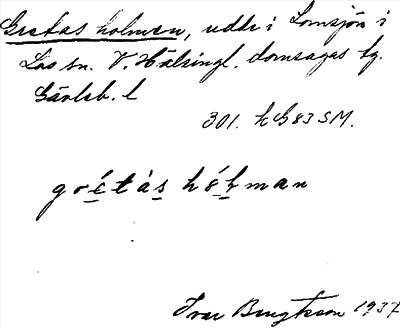 Gretas holmen, udde i Lomsjön i
Los sn. V. Hälsingl. domsagas tg.
Gävleb. l
301. h G 83 SM.
gré̱tàs̱ hó̱ḻman
Ivar Bengtsson 1937